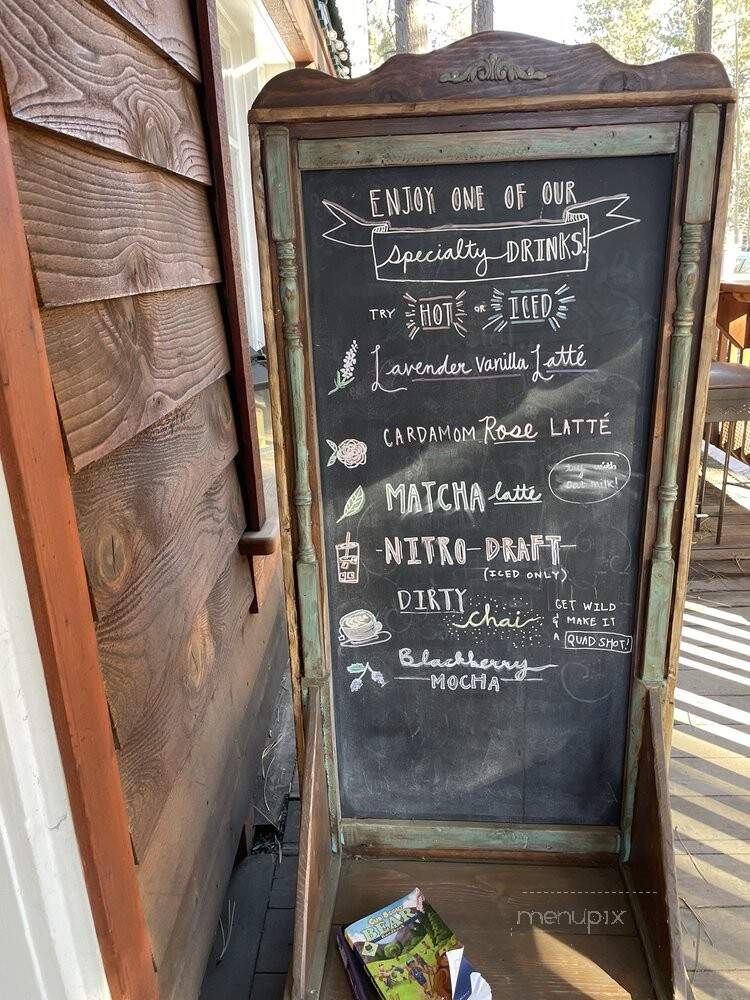 ENJOY ONE OF OUR
Specialty DRINKS!
TRY HOT OR ICED
Lavender Vanilla Latté
CARDAMOM Rose LATTÉ
MATCHA latte
try with
oat milk!
NITRO-DRAFT
(ICED ONLY)
DIRTY
chai
GET WILD
& MAKE IT
A QUAD SHOT!
Blackberry
MOCHA
BEAR
menupix